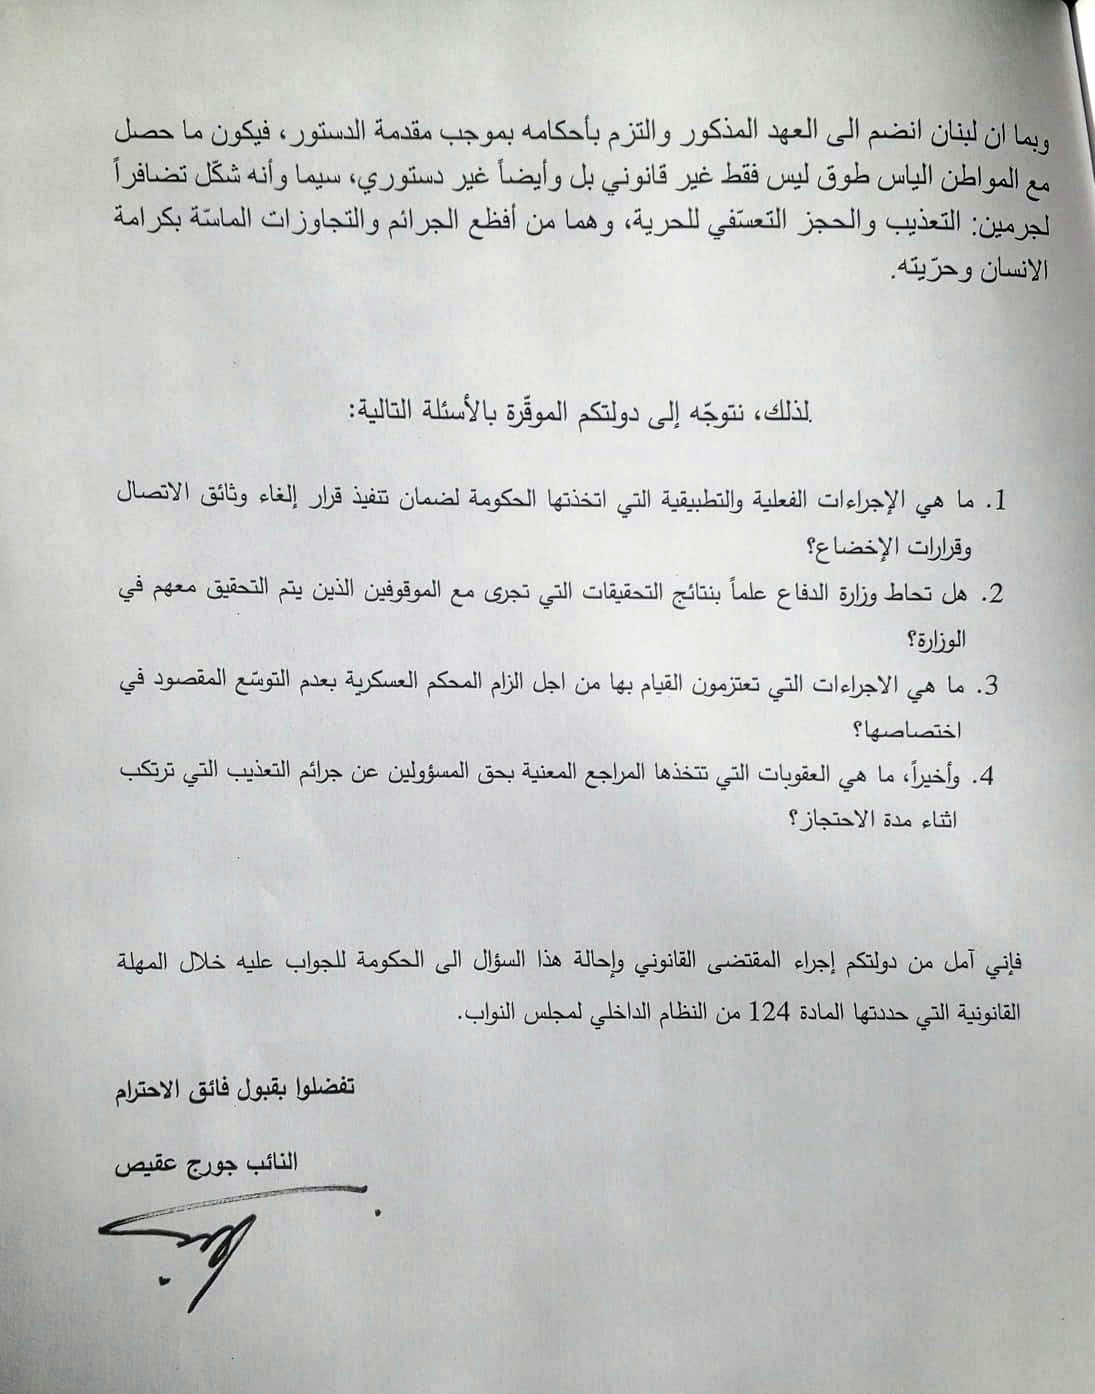 وبما ان لبنان انضم الى العهد المذكور والتزم بأحكامه بموجب مقدمة الدستور، فيكون ما حصل
مع المواطن الياس طوق ليس فقط غير قانوني بل وأيضاً غير دستوري، سيما وأنه شكّل تضافراً
لجرمين: التعذيب والحجز التعسّفي للحرية، وهما من أفظع الجرائم والتجاوزات الماسّة بكرامة
الانسان وحرّيته.
لذلك، نتوجّه إلى دولتكم الموقّرة بالأسئلة التالية:
1. ما هي الإجراءات الفعلية والتطبيقية التي اتخذتها الحكومة لضمان تنفيذ قرار إلغاء وثائق الاتصال
وقرارات الإخضاع؟
2. هل تحاط وزارة الدفاع علماً بنتائج التحقيقات التي تجرى مع الموقوفين الذين يتم التحقيق معهم في
الوزارة؟
3. ما هي الاجراءات التي تعتزمون القيام بها من اجل الزام المحكم العسكرية بعدم التوسّع المقصود في
اختصاصها؟
4. وأخيراً، ما هي العقوبات التي تتخذها المراجع المعنية بحق المسؤولين عن جرائم التعذيب التي ترتكب
اثناء مدة الاحتجاز؟
فإني آمل من دولتكم إجراء المقتضى القانوني وإحالة هذا السؤال الى الحكومة للجواب عليه خلال المهلة
القانونية التي حددتها المادة 124 من النظام الداخلي لمجلس النواب.
تفضلوا بقبول فائق الاحترام
النائب جورج عقيص